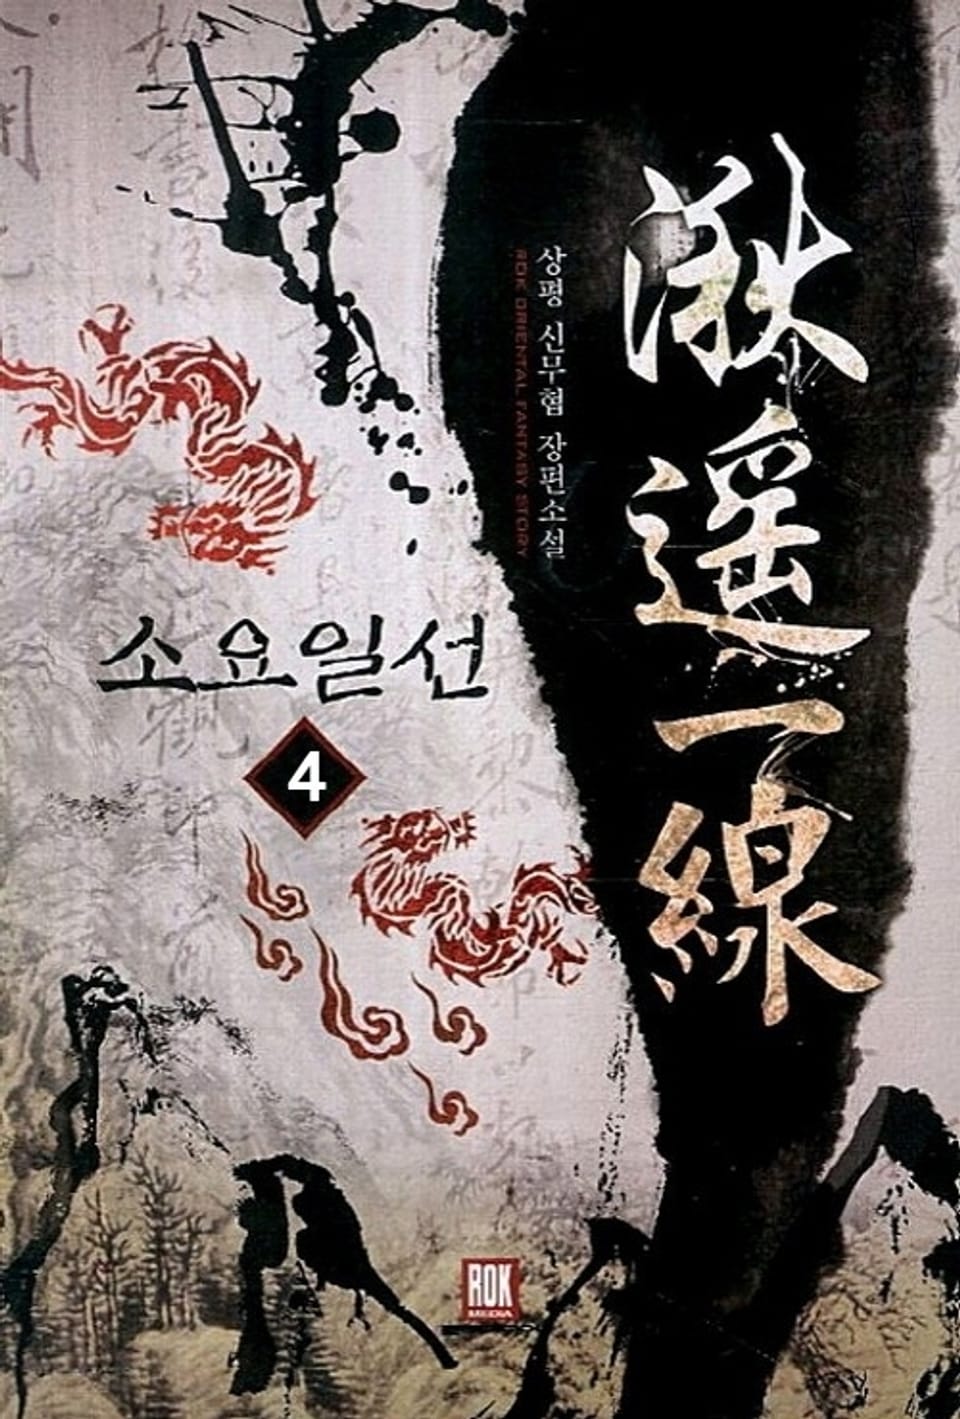 遙
一
線
상평 신무협 장편소설
ROK ORIENTAL FANTASY STORY
소요일선
4
ROK
MEDIA